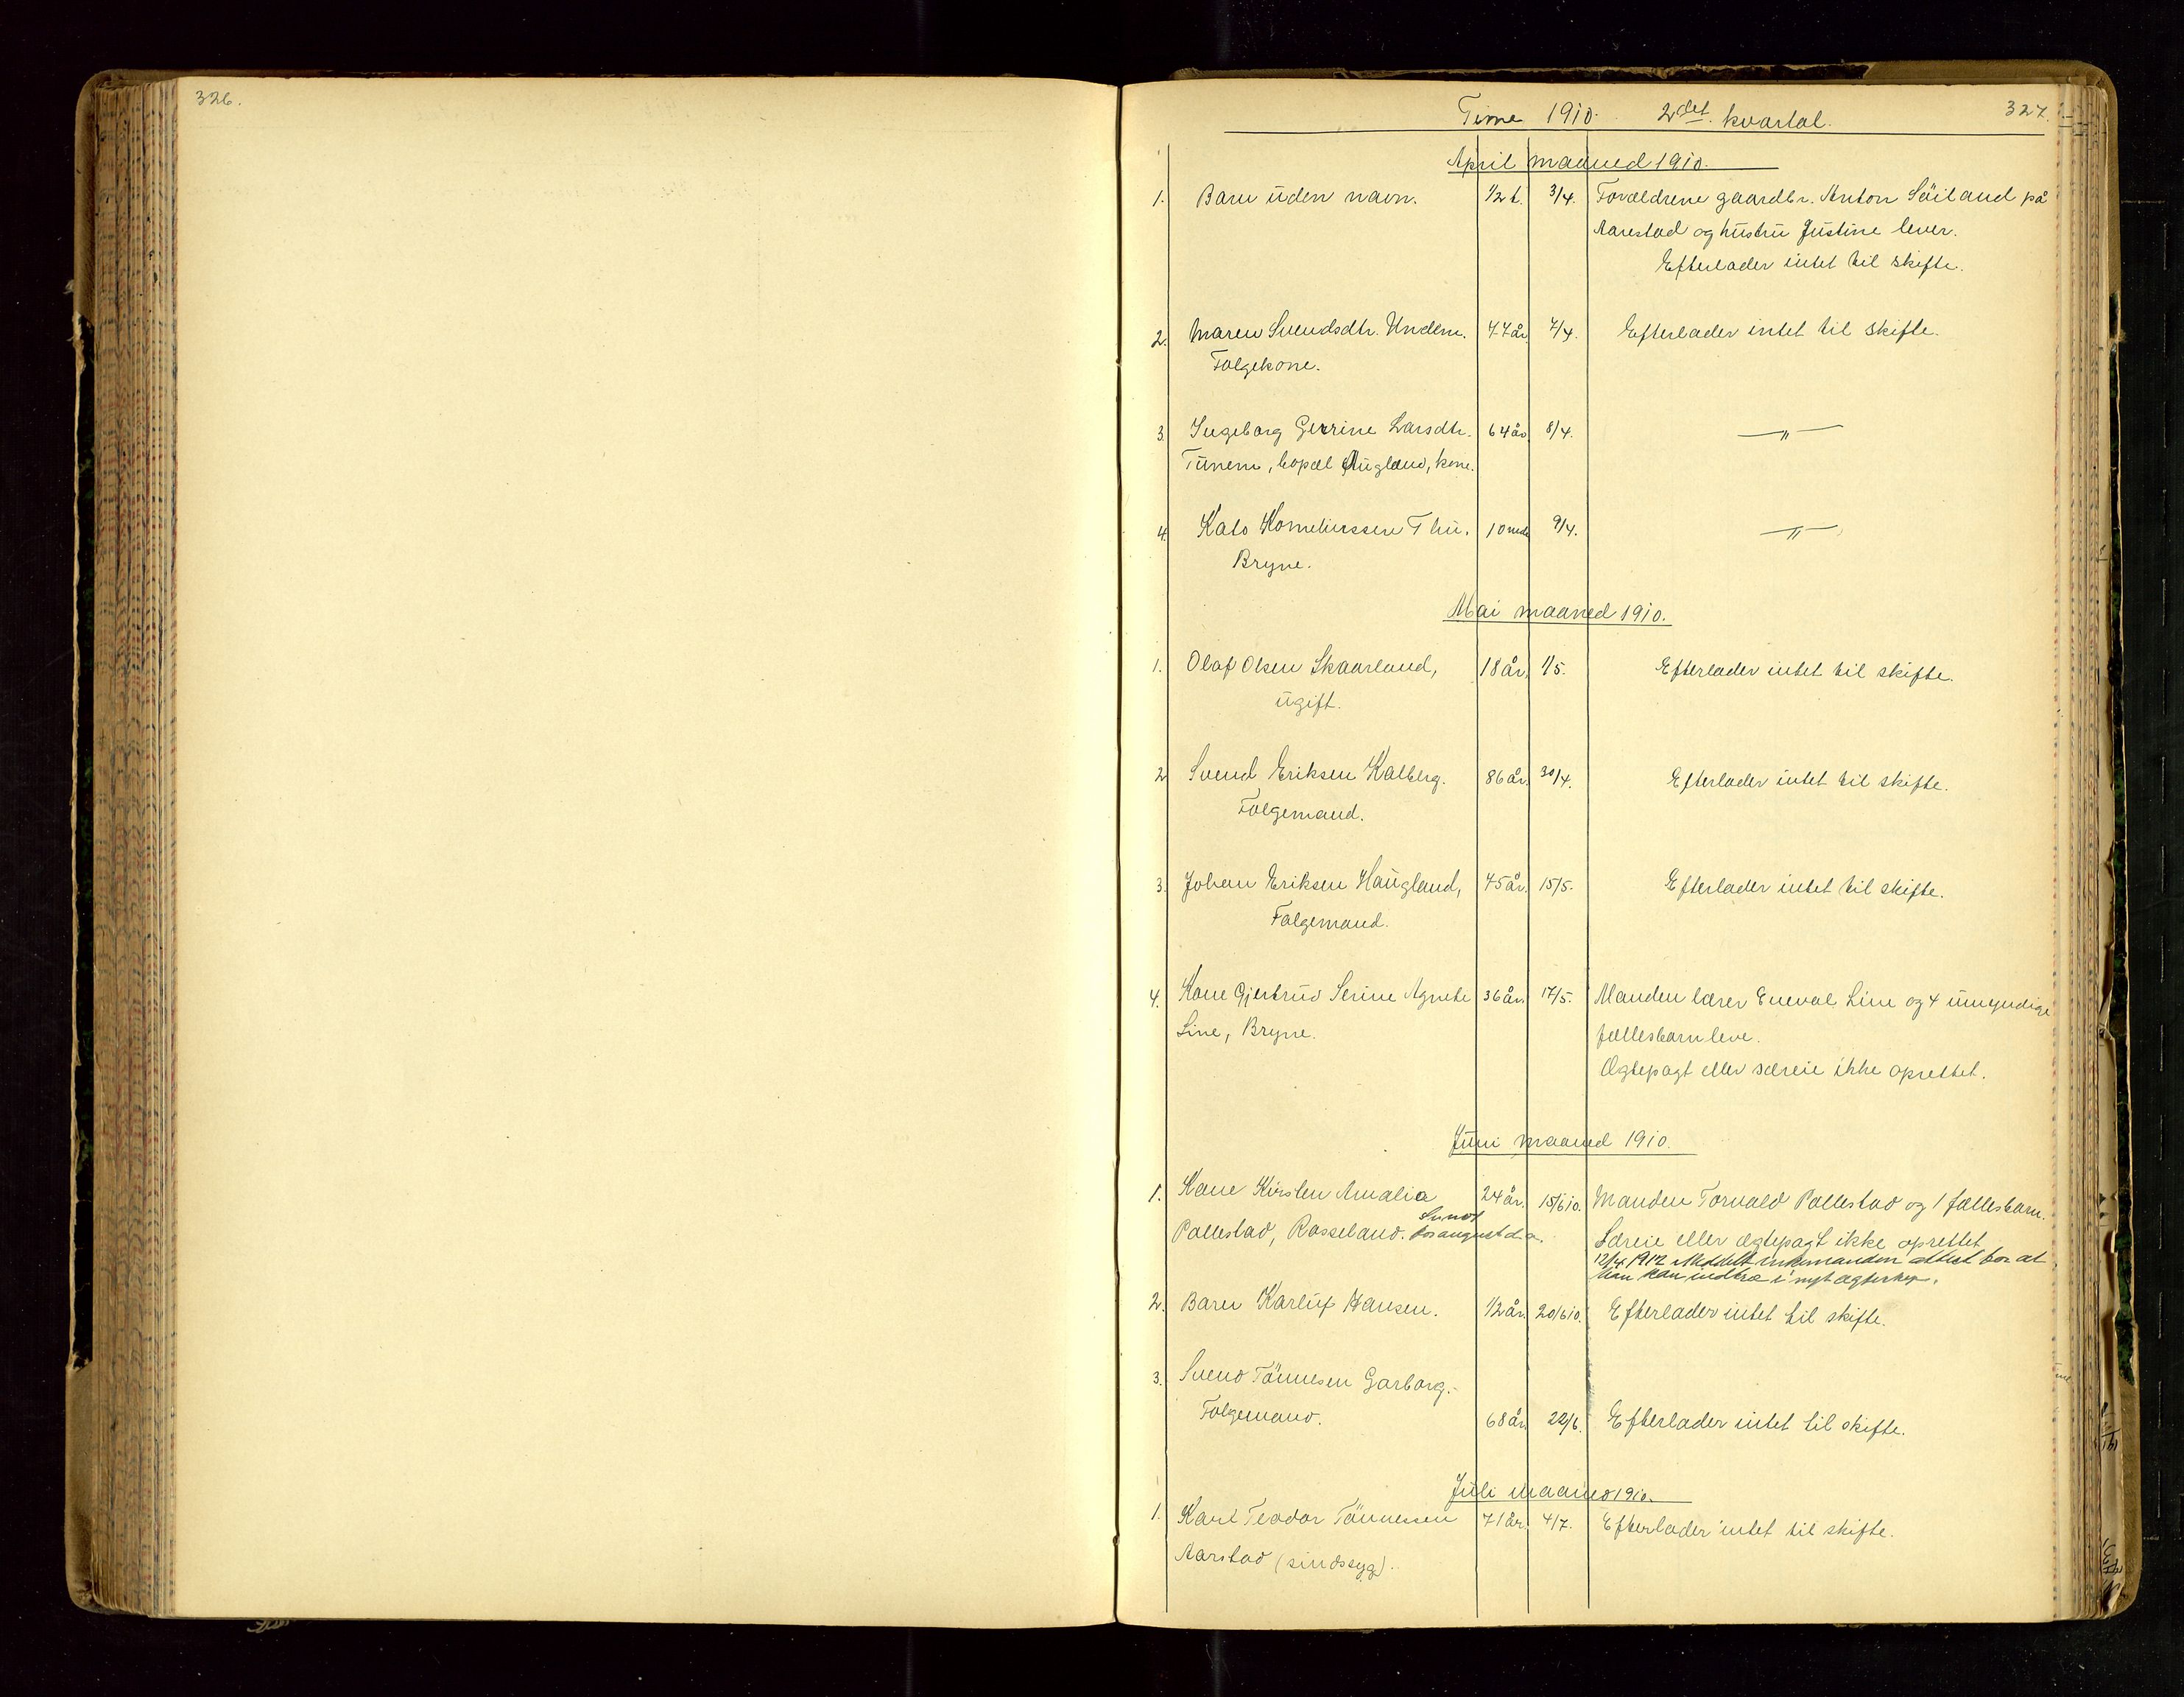 326.
327.
Time 1910. 2det. kvartal.
April maaned 1910.
1. Barn uden navn. 1/2 t. 3/4. Forældrene gaardbr. Anton Söiland på
Aarestad og hustru Justine lever.
Efterlader intet til skifte.
2. Maren Svendsdtr. Undem. 77 år. 7/4. Efterlader intet til skifte.
Folgekone.
3. Ingeborg Gerrine Larsdtr. 64 år. 8/4. — " —
Tunem, bopæl Augland, kone.
4. Kato Korneliussen Thu. 10 mdr 9/4. — " —
Bryne.
Mai maaned 1910.
1. Olaf Olsen Skaarland, 18 år. 1/5. Efterlader intet til skifte.
ugift.
2. Svend Eriksen Kalberg. 86 år. 30/4. Efterlader intet til skifte.
Folgemand.
3. Johan Eriksen Haugland, 75 år. 15/5. Efterlader intet til skifte.
Folgemand.
4. Kone Gjertrud Serine Agnete 36 år. 17/5. Manden lærer Eneval Line og 4 umyndige
Line, Bryne. fællesbarn leve.
Ægtepagt eller særeie ikke oprettet.
Juni maaned 1910.
1. Kone Kirsten Amalia 24 år. 15/6 10. Manden Torvald Pollestad og 1 fællesbarn.
Pollestad, Rosseland. Særeie eller ægtepagt ikke oprettet
12/4 1912 Meddelt enkemanden attest for at
han kan indtræ i nyt ægteskap.
2. Barn Karluf Hansen. 1/2 år. 20/6 10. Efterlader intet til skifte.
3. Svend Tönnesen Garborg.
Folgemand. 68 år. 22/6. Efterlader intet til skifte.
Juli maaned 1910.
1. Karl Teodor Tönnessen 71 år. 4/7. Efterlader intet til skifte.
Aarstad (sindssyg).